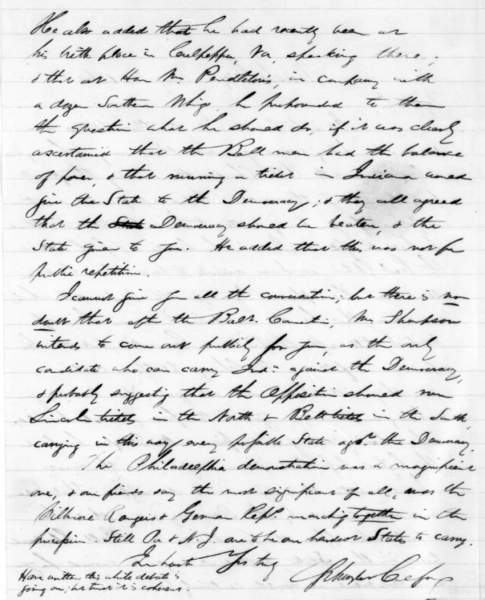 He also added that he had recently been at
his birth place in Culpepper, Va, speaking there;
& that at Hon Mr Pendleton's, in company with
a dozen Southern Whigs, he propounded to them
the question what he should do, if it was clearly
ascertained that the Bell men had the balance
of power, & that running a ticket in Indiana would
give the State to the Democracy; & they all agreed
that the State Democracy should be beaten, & the
State given to you. He added that this was not for
public repetition.
I cannot give you all the conversation; but there is no
doubt that after the Balt. Convention, Mr Thompson
intends to come out publicly for you, as the only
candidate who can carry Inda against the Democracy,
& probably suggesting that the Opposition should run
Lincoln tickets in the North & Bell tickets in the South,
carrying in this way every possible State agst the Democracy.
The Philadelphia demonstration was a magnificent
one, & our friends say the most significant of all, was the
Fillmore Rangers & German Repn marching together in the
procession. Still Pa & N.J. are to be our hardest States to carry.
In haste Yrs truly
Schuyler Colfax
Have written this while debate is
going on, but trust it is coherent.